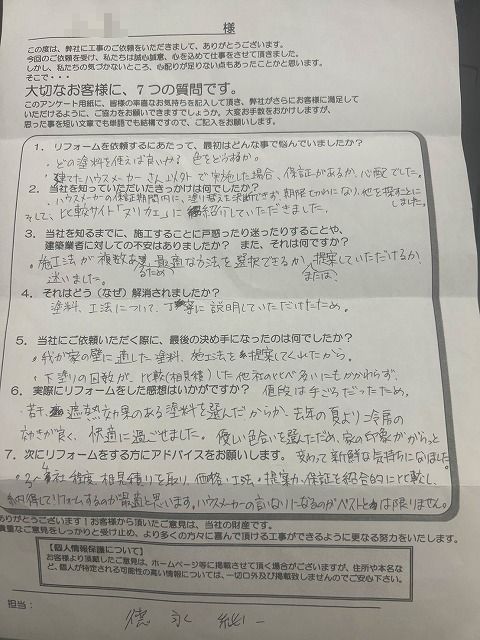 様
この度は、弊社に工事のご依頼をいただきまして、ありがとうございます。
今回のご依頼を受け、私たちは誠心誠意、心を込めて仕事をさせて頂きました。
しかし、私たちの気づかないところ、心配りが足りない点もあったことかと思います。
そこで・・・
大切なお客様に、７つの質問です。
このアンケート用紙に、皆様の率直なお気持ちを記入して頂き、弊社がさらにお客様に満足して
いただけるように、ご協力をお願いできますでしょうか。大変お手数をおかけしますが、
思った事を短い文章でも単語でも結構ですので、ご記入をお願いします。
1. リフォームを依頼するにあたって、最初はどんな事で悩んでいましたか？
・どの塗料を使えば良いかな 色をどう様か。
・建てたハウスメーカーさん以外で実施した場合、保証があるか、心配でした。
2. 当社を知っていただいたきっかけは何でしたか？
・ハウスメーカーの保証期間内に、塗り替えを決断できず期限切れになり、他を探すことにしました。
そして、比較サイト「ヌリカエ」に紹介していただきました。
3. 当社を知るまでに、施工することに戸惑ったり迷ったりすることや、
建築業者に対しての不安はありましたか？ また、それは何ですか？
・施工法が複数あるため、最適な方法を選択できるか、または提案していただけるか
迷いました。
4. それはどう（なぜ）解消されましたか？
塗料、工法について、丁寧に説明していただけたため。
5. 当社にご依頼いただく際に、最後の決め手になったのは何でしたか？
・我が家の壁に適した塗料、施工法を提案してくれたから。
・下塗りの回数が、比較（相見積）した他社の比べ多いにもかかわらず、
値段は手ごろだったため。
6. 実際にリフォームをした感想はいかがですか？
・若干、遮熱効果のある塗料を選んだからか、去年の夏より冷房の
効きが良く、快適に過ごせました。優しい色合いを選んだため、家の印象ががらっと
変わって新鮮な気持ちになりました。
7. 次にリフォームをする方にアドバイスをお願いします。
・3〜4社程度、相見積りを取り、価格・工法・提案力・保証を総合的に比較し、
納得してリフォームするのが最適と思います。ハウスメーカーの言いなりになるのがベストとは限りません。
ありがとうございます！お客様から頂いたご意見は、当社の財産です。
貴重なご意見をしっかりと受け止め、より多くの方々に喜んで頂ける工事ができるように更なる努力をいたします。
【個人情報保護について】
お客様より頂戴したご意見は、ホームページ等に掲載させて頂く場合がございますが、住所や本名な
ど、個人が特定される可能性の高い情報については、一切口外及び掲載致しませんのでご安心下さい。
担当：
徳永